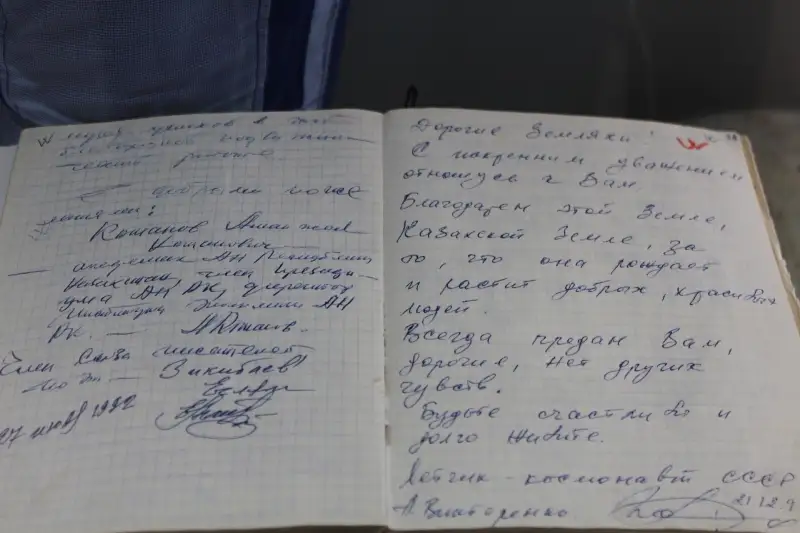 успехов в
работе.
С добрыми поже
ланиями:
Кошанов Аманжол
Кошанович —
академик АН Республики
Казахстан, член Президи-
ума АН РК, директор
Института экономики АН
РК. —
Член Союза писателей
Зикибаев
27 июня 1992
Дорогие Земляки!
С искренним уважением
отношусь к Вам.
Благодарен этой Земле,
Казахской Земле, за
то, что она рождает
и растит добрых, красивых
людей.
Всегда предан Вам,
дорогие, нет других
чувств.
Будьте счастливы и
долго живите.
Летчик-космонавт СССР
А Викторенко
21.12.9